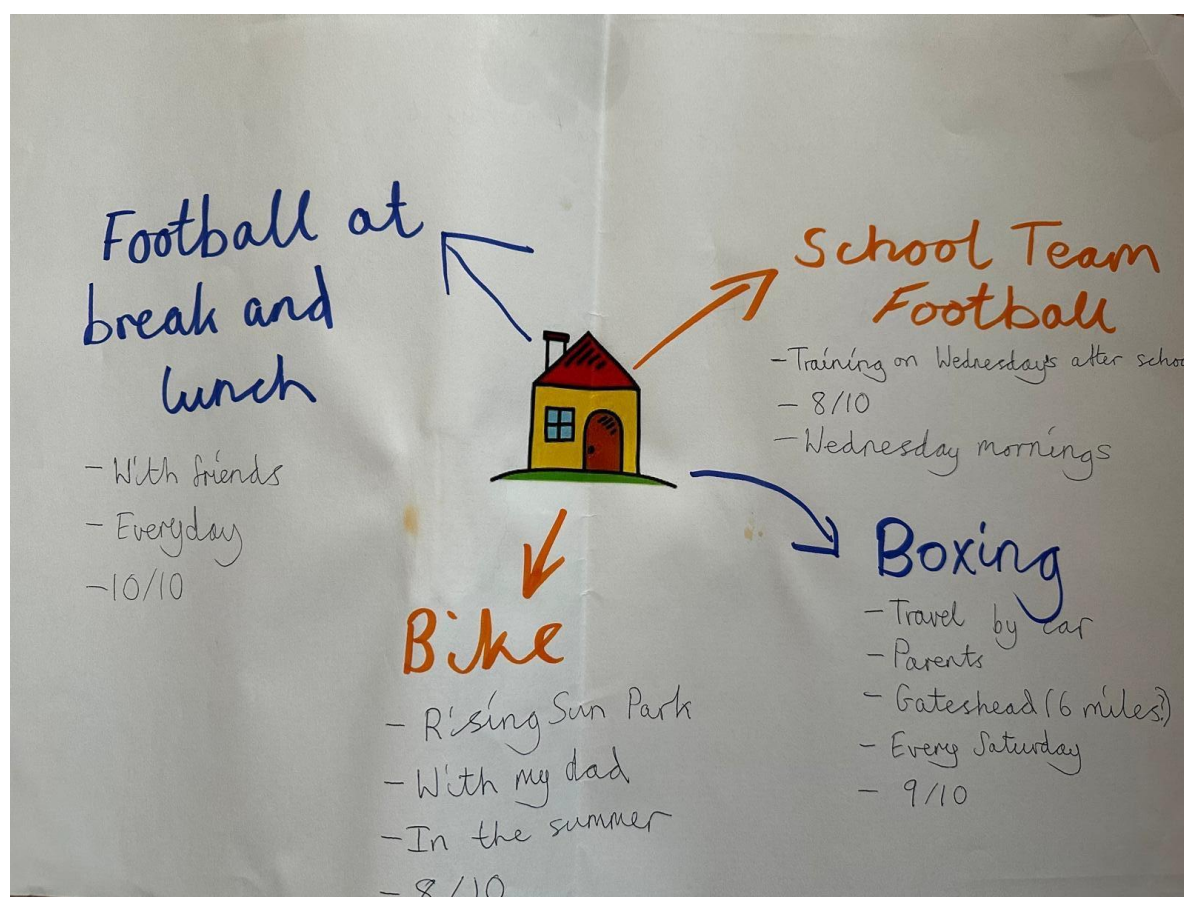 Football at
break and
lunch
- With friends
- Everyday
- 10/10
School Team
Football
- Training on Wednesday's after schoo
- 8/10
- Wednesday mornings
Boxing
- Travel by car
- Parents
- Gateshead (6 miles?)
- Every Saturday
- 9/10
Bike
- Rising Sun Park
- With my dad
- In the summer
- 8/10